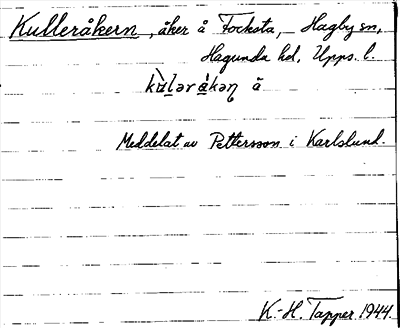 Kulleråkern, åker å Focksta, Hagby sn,
Hagunda hd, Upps. l.
kùlǝråkǝɳ ä
Meddelat av Pettersson i Karlslund.
K.-H. Tapper 1944.